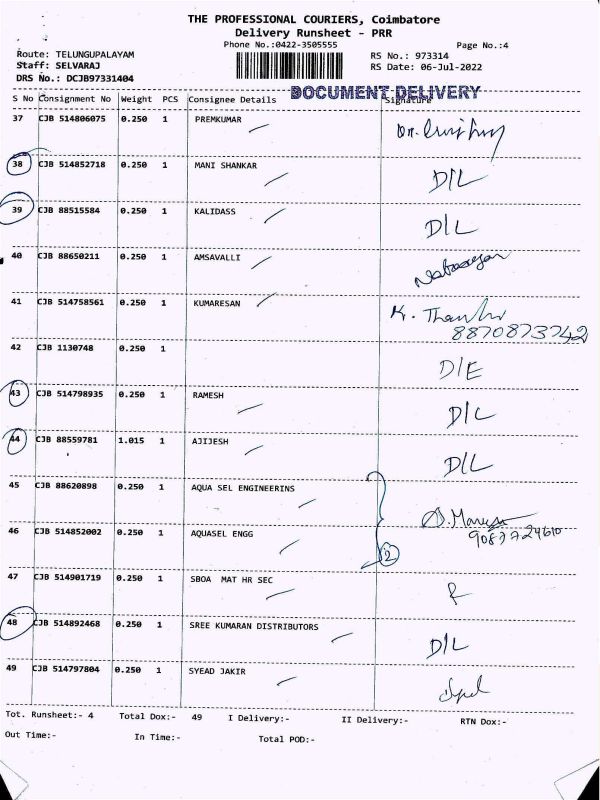 THE PROFESSIONAL COURIERS, Coimbatore
Delivery Runsheet - PRR
Phone No.:0422-3505555
Page No.:4
Route: TELUNGUPALAYAM
RS No.: 973314
Staff: SELVARAJ
RS Date: 06-Jul-2022
DRS No.: DCJB97331404
DOCUMENT DELIVERY
S No Consignment No Weight PCS Consignee Details Signature
37 CJB 514806075 0.250 1 PREMKUMAR
38 CJB 514852718 0.250 1 MANI SHANKAR D/L
39 CJB 88515584 0.250 1 KALIDASS D/L
40 CJB 88650211 0.250 1 AMSAVALLI
41 CJB 514758561 0.250 1 KUMARESAN K.
8870873742
42 CJB 1130748 0.250 1 D/E
43 CJB 514798935 0.250 1 RAMESH D/L
44 CJB 88559781 1.015 1 AJIJESH D/L
45 CJB 88620898 0.250 1 AQUA SEL ENGINEERINS
46 CJB 514852002 0.250 1 AQUASEL ENGG
2
47 CJB 514901719 0.250 1 SBOA MAT HR SEC
48 CJB 514892468 0.250 1 SREE KUMARAN DISTRIBUTORS D/L
49 CJB 514797804 0.250 1 SYEAD JAKIR
Tot. Runsheet:- 4 Total Dox:- 49 I Delivery:- II Delivery:- RTN Dox:-
Out Time:- In Time:- Total POD:-